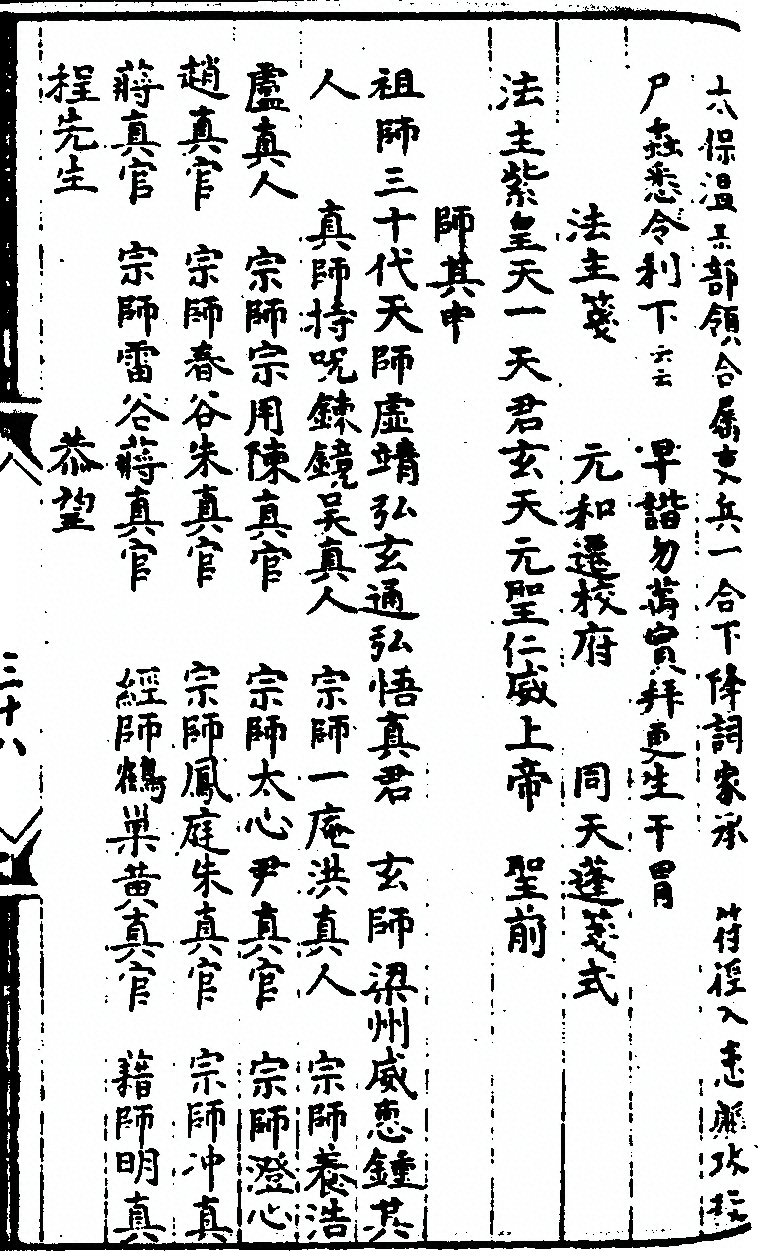 太保溫某部領合屬吏兵一合下降詞家承　符徑入患
尸蟲悉令利下云云　早諧勿萬實拜更生干冒
法主箋　元和遷校府　同天蓬箋式
法主紫皇天一天君玄天元聖仁威上帝　聖前
師其申
祖師三十代天師虛靖弘玄通弘悟真君　玄師梁州威惠鍾真
人　真師持呪鍊鏡吴真人　宗師一庵洪真人　宗師養浩
盧真人　宗師宗用陳真官　宗師太心尹真官　宗師澄心
趙真官　宗師春谷朱真官　宗師鳳庭朱真官　宗師冲真
蔣真官　宗師雷谷蔣真官　經師鶴巢黄真官　籍師明真
程先生　恭望
三十八